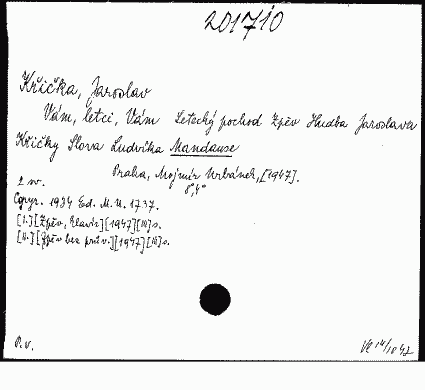 201710
Křička, Jaroslav
Vám, letci, Vám Letecký pochod Zpěv Hudba Jaroslava
Křičky Slova Ludvíka Mandause
Praha, Mojmír Urbánek, [1947].
2 sv. 8°, 4°
Copyr. 1934 Ed. M. U. 1737.
[I.] [Zpěv, klavír] [1947] [III] s.
[II.] [Zpěv bez prův.] [1947] [II] s.
P.v. 14/10 47